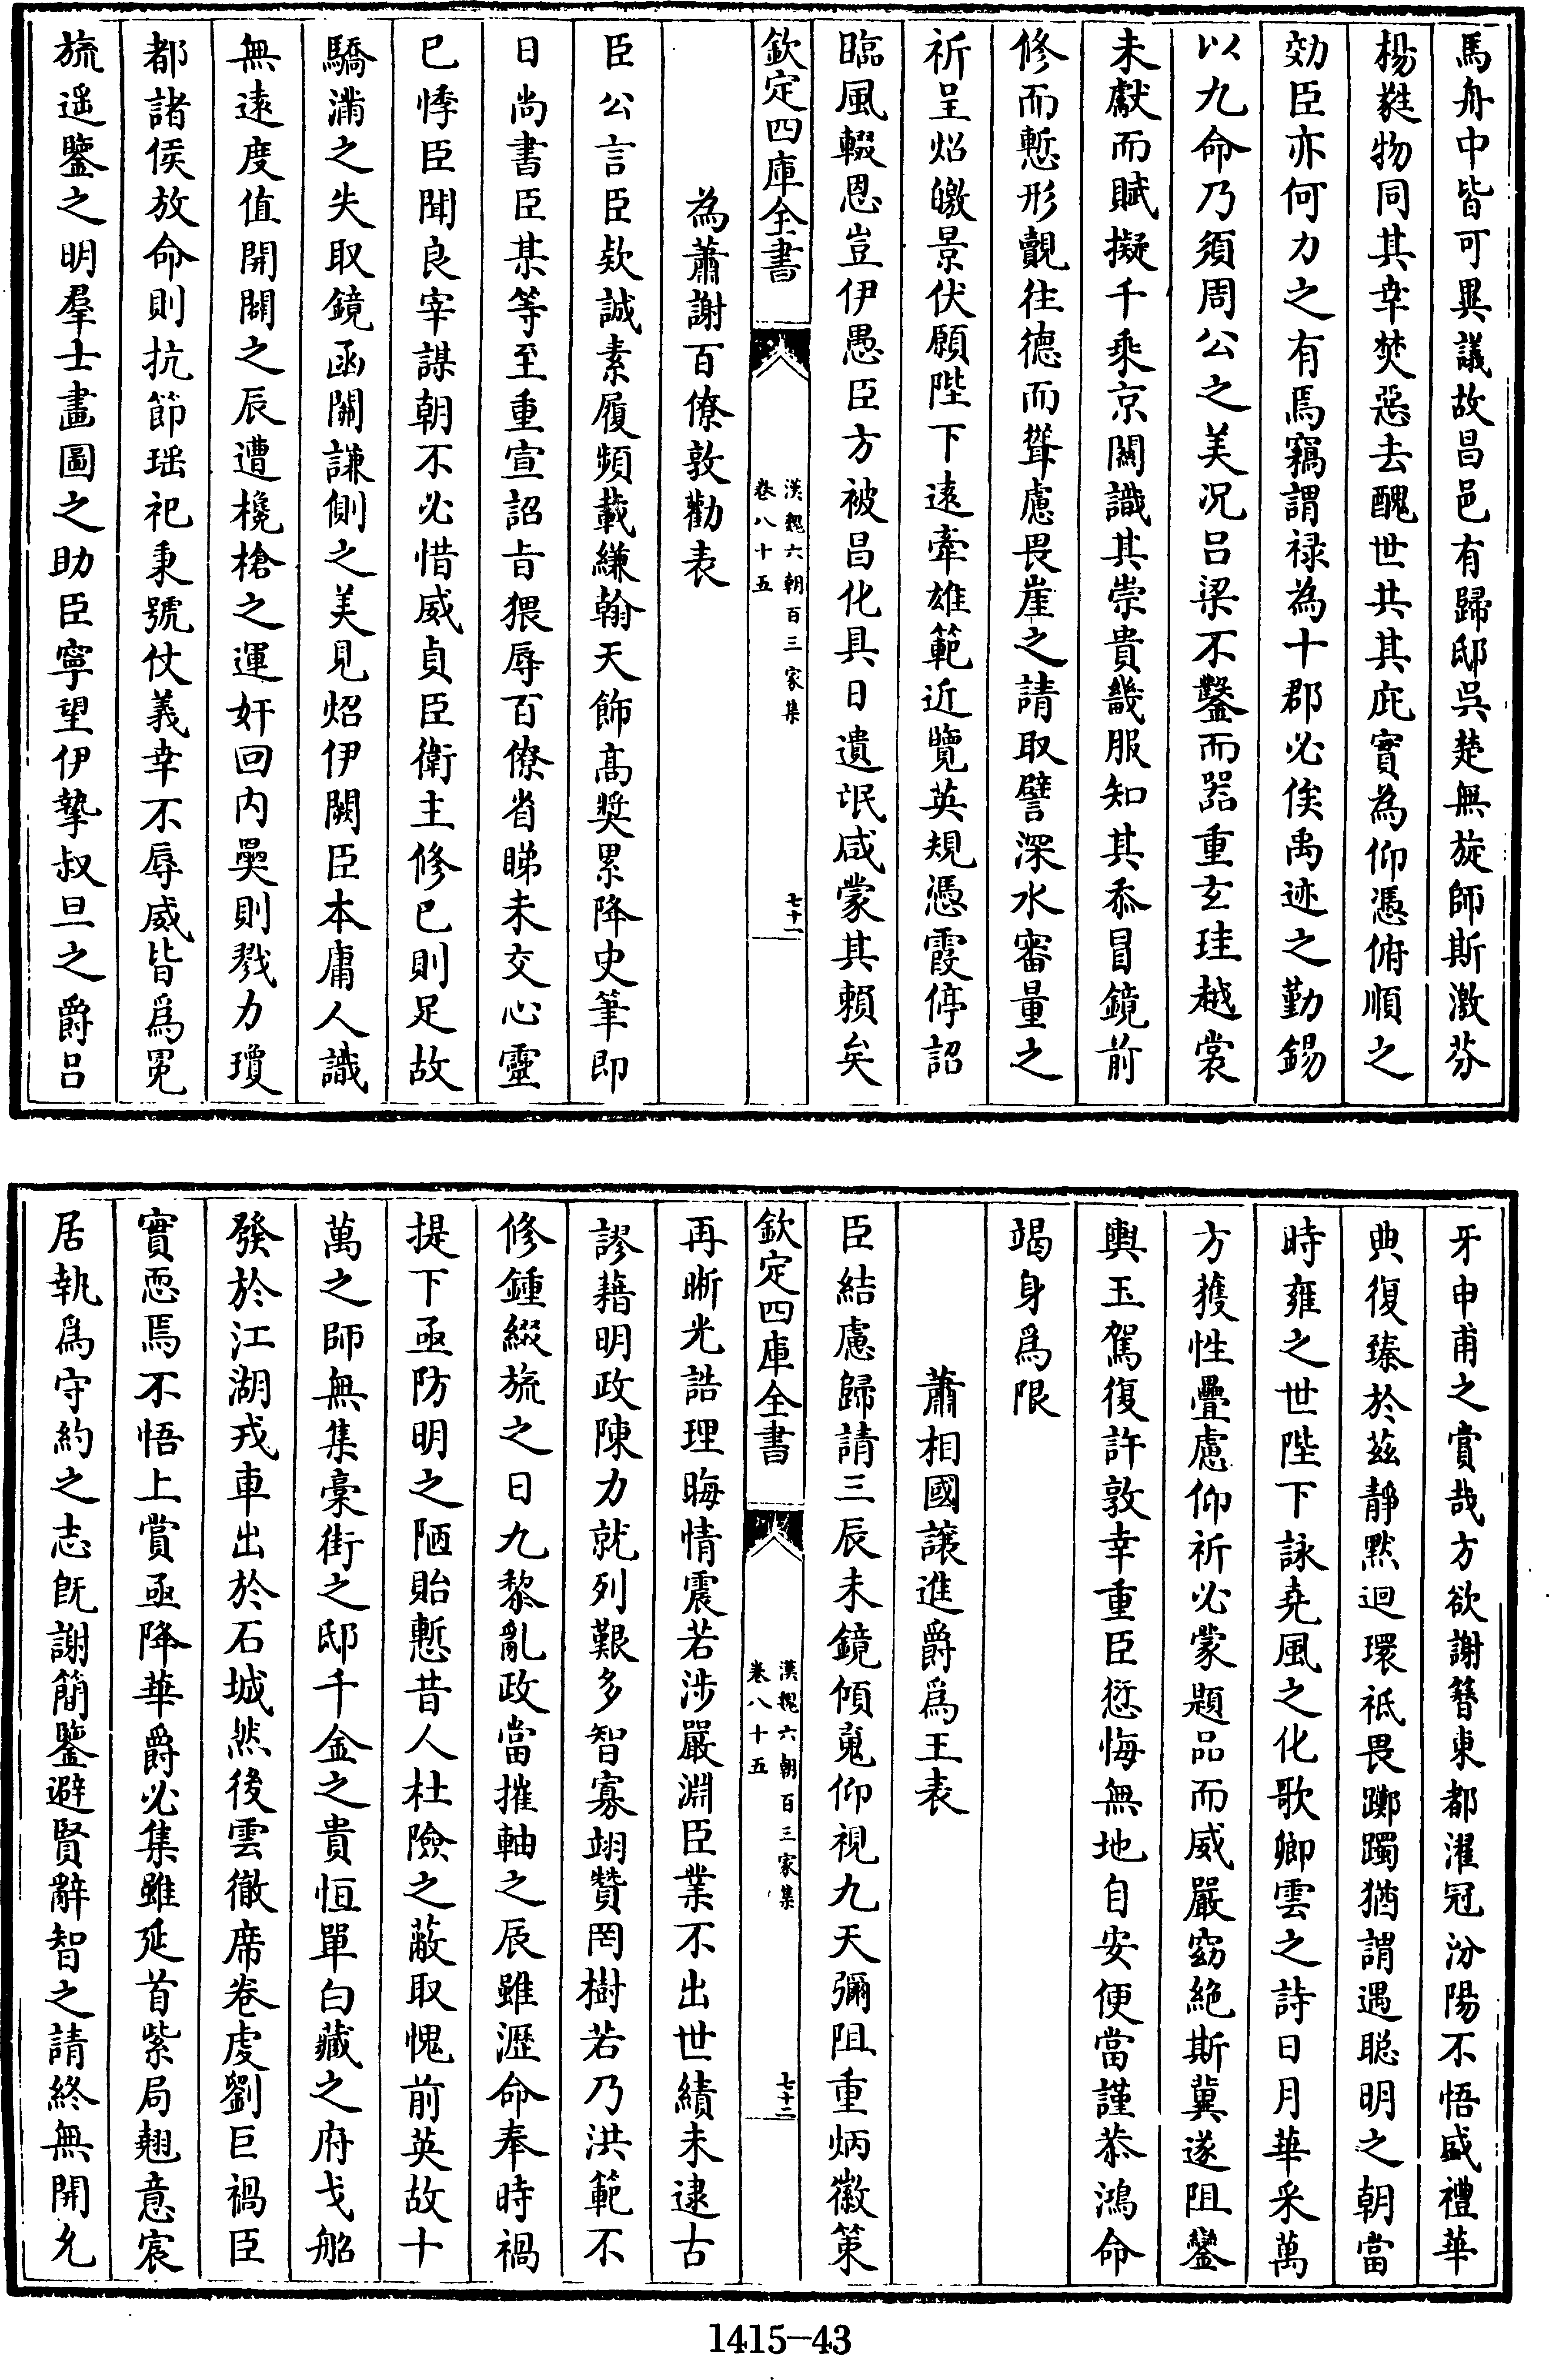 馬舟中皆可異議故昌邑有歸邸吳楚無旋師斯激芬
楊蕤物同其幸焚惡去醜世共其庇實為仰憑俯順之
効臣亦何力之有焉竊謂禄為十郡必俟禹迹之勤錫
以九命乃須周公之美况呂梁不鑿而器重玄珪越裳
未獻而賦擬千乘京闗識其崇貴畿服知其忝冒鏡前
修而慙形覿徃德而聳慮畏崖之請取譬深水審量之
祈呈炤皦景伏願陛下逺牽雄範近覽英規憑霞停詔
臨風輟恩豈伊愚臣方被昌化具日遺氓咸蒙其賴矣
欽定四庫全書
漢魏六朝百三家集
卷八十五
七十一
為蕭謝百僚敦勸表
臣公言臣欵誠素履頻載縑翰天飾髙奬累降史筆即
日尚書臣某等至重宣詔㫖猥辱百僚省睇未交心靈
已悸臣聞良宰謀朝不必惜威貞臣衛主修己則足故
驕滿之失取鏡函闗謙側之美見炤伊闕臣本庸人識
無逺度值開闢之辰遭欃槍之運奸回内奰則戮力瓊
都諸侯放命則抗節瑶祀秉號仗義幸不辱威皆爲冕
旒遥鑒之明羣士畫圖之助臣寧望伊摯叔旦之爵呂
牙申甫之賞哉方欲謝簪東都濯冠汾陽不悟盛禮華
典復臻於兹靜黙迴環祇畏躑躅猶謂遇聪明之朝當
時雍之世陛下詠堯風之化歌卿雲之詩日月華采萬
方獲性疊慮仰祈必蒙題品而威嚴窈絶斯冀遂阻鑾
輿玉駕復許敦幸重臣愆悔無地自安便當謹恭鴻命
竭身爲限
蕭相國讓進爵爲王表
臣結慮歸請三辰未鏡傾嵬仰視九天彌阻重炳徽策
欽定四庫全書
漢魏六朝百三家集
卷八十五
七十二
再晰光誥理晦情震若渉嚴淵臣業不出世績未逮古
謬藉明政陳力就列艱多智寡翊贊罔樹若乃洪範不
修鍾綴旒之日九黎亂政當摧軸之辰雖瀝命奉時禍
提下亟防明之陋貽慙昔人杜險之蔽取愧前英故十
萬之師無集槀街之邸千金之貴恒單白藏之府戈船
發於江湖戎車出於石城然後雲徹席卷虔劉巨禍臣
實恧焉不悟上賞亟降華爵必集雖延首紫局翹意宸
居執爲守約之志旣謝簡鑒避賢辭智之請終無開允
1415-43